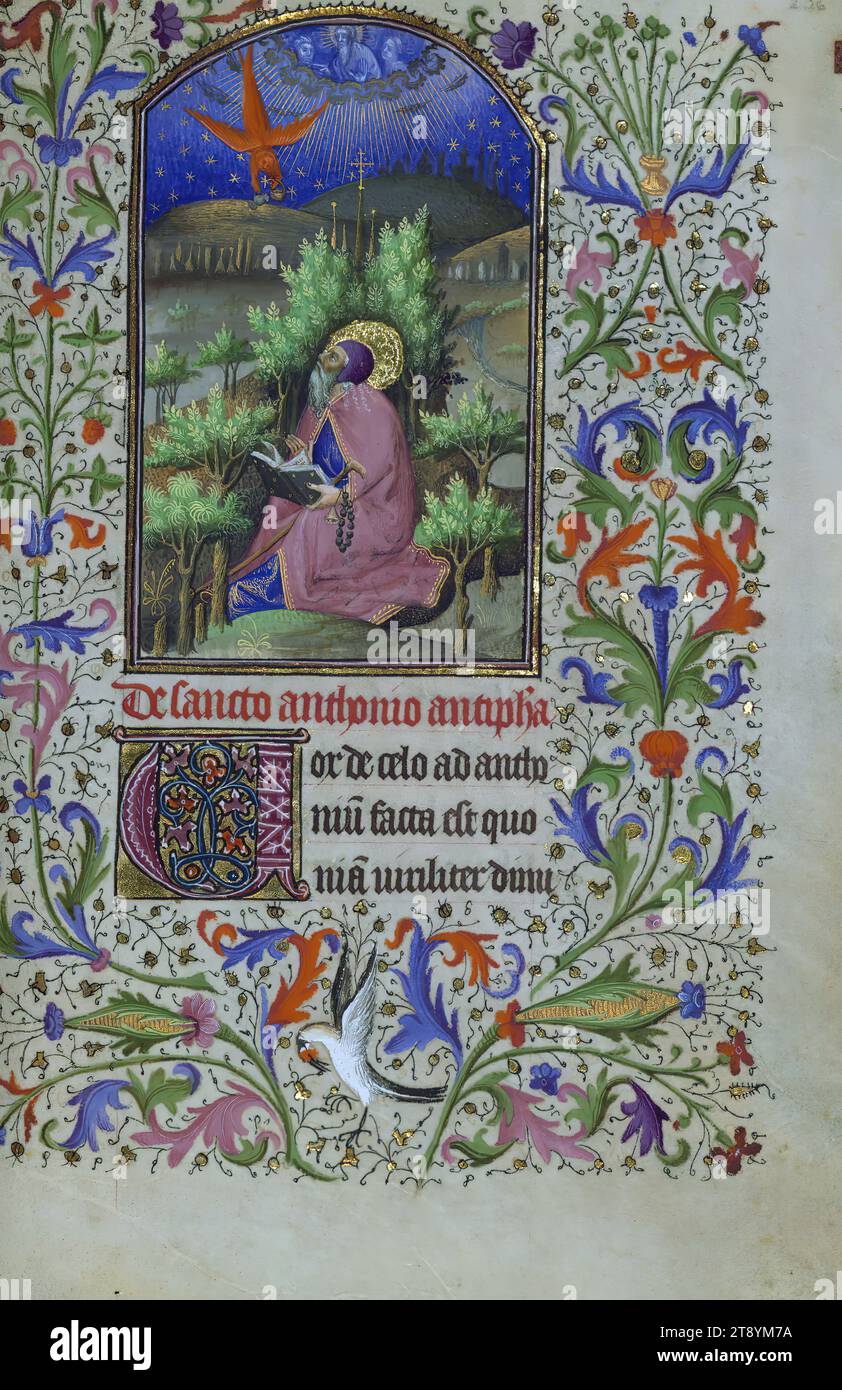 236
De sancto anthonio antipha
Vor de celo ad antho
niū facta est quo
niā viriliter dimi
alamy
Image ID: 2T8YM7A
www.alamy.com